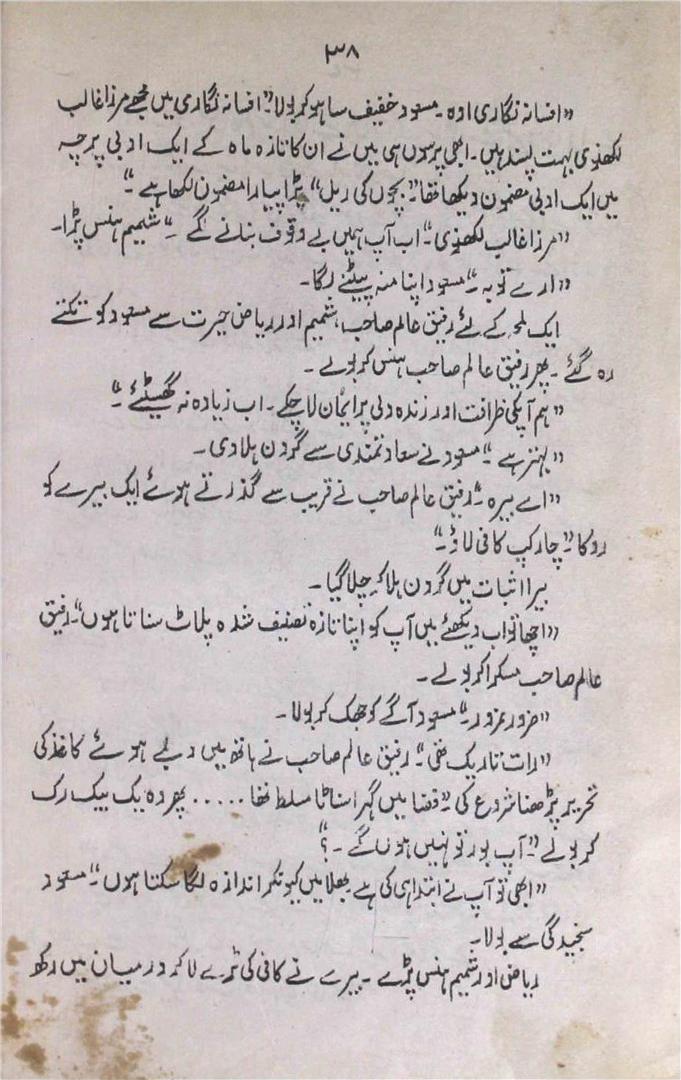 ۳۸
”افسانہ نگاری اوہ۔ مسعود خفیف سا ہو کر بولا۔“ افسانہ نگاری میں مجھے مرزا غالب
لکھنوی بہت پسند ہیں۔ ابھی پرسوں ہی میں نے ان کا تازہ ماہ کے ایک ادبی پرچہ
میں ایک ادبی مضمون دیکھا تھا۔ ”بچوں کی ریل“ بڑا پیارا مضمون لکھا ہے۔“
”مرزا غالب لکھنوی۔“ اب آپ ہمیں بے وقوف بنانے لگے۔“ شمیم ہنس پڑا۔
”ارے توبہ۔“ مسعود اپنا منہ پیٹنے لگا۔
ایک لمحہ کے لئے رفیق عالم صاحب، شمیم اور ریاض حیرت سے مسعود کو تکتے
رہ گئے۔ پھر رفیق عالم صاحب ہنس کر بولے۔
”ہم آپکی ظرافت اور زندہ دلی پر ایمان لا چکے۔ اب زیادہ نہ گھسیٹئے۔“
”بہتر ہے۔“ مسعود نے سعادتمندی سے گردن ہلا دی۔
”اے بیرہ۔“ رفیق عالم صاحب نے قریب سے گذرتے ہوئے ایک بیرے کو
روکا۔ ”چار کپ کافی لاؤ۔“
بیرا اثبات میں گردن ہلا کر چلا گیا۔
”اچھا تو اب دیکھئے میں آپ کو اپنا تازہ تصنیف شدہ پلاٹ سناتا ہوں“۔ رفیق
عالم صاحب مسکرا کر بولے۔
”ضرور ضرور۔“ مسعود آگے کو جھک کر بولا۔
”رات تاریک تھی۔“ رفیق عالم صاحب نے ہاتھ میں دبے ہوئے کاغذ کی
تحریر پڑھنا شروع کی۔ ”فضا میں گہرا سناٹا مسلط تھا ..... پھر وہ یک بیک رک
کر بولے۔ ”آپ بور تو نہیں ہوں گے۔؟“
”ابھی تو آپ نے ابتدا ہی کی ہے بھلا میں کیونکر اندازہ لگا سکتا ہوں۔“ مسعود
سنجیدگی سے بولا۔
ریاض اور شمیم ہنس پڑے۔ بیرے نے کافی کی ٹرے لا کر درمیان میں رکھ